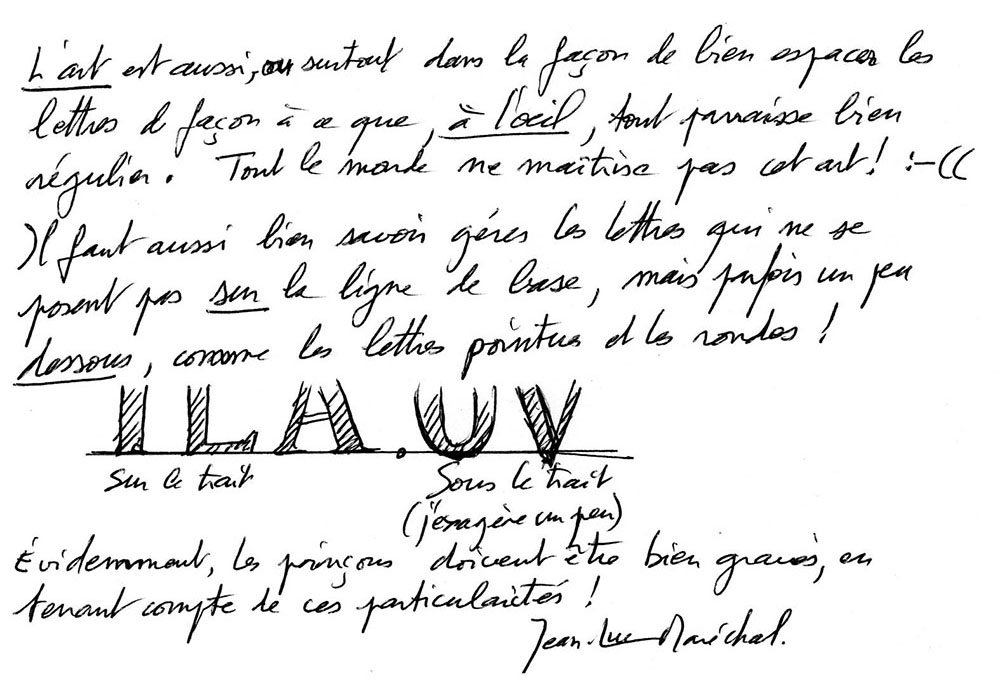 L'art est aussi, ou surtout dans la façon de bien espacer les
lettres de façon à ce que, à l'oeil, tout parraisse bien
régulier. Tout le monde ne maîtrise pas cet art! :-((
Il faut aussi bien savoir gérer les lettres qui ne se
posent pas sur la ligne de base, mais parfois un peu
dessous, comme les lettres pointues et les rondes !
I L A . U V
Sur le trait
Sous le trait
(j'exagère un peu)
Évidemment, les poinçons doivent être bien gravés, en
tenant compte de ces particularités !
Jean-Luc Maréchal.